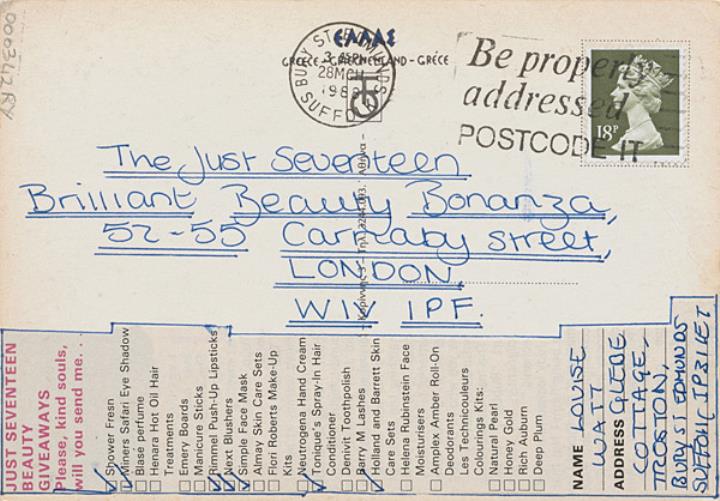 000342RY
ΕΛΛΑΣ
GREECE - GRIECHENLAND - GRÈCE
BURY ST. EDMUNDS
28 MCH
1988
SUFFOLK
Be properly
addressed
POSTCODE IT
18P
The Just Seventeen
Brilliant Beauty Bonanza,
52-55 Carnaby street,
LONDON,
W1V 1PF.
JUST SEVENTEEN
BEAUTY
GIVEAWAYS
Please, kind souls,
will you send me. . .
Shower Fresn
Miners Safari Eye Shadow
Blasé perfume
Henara Hot Oil Hair
Treatments
Emery Boards
Manicure Sticks
Rimmel Push-Up Lipsticks
Next Blushers
Simple Face Mask
Almay Skin Care Sets
Flori Roberts Make-Up
Kits
Neutrogena Hand Cream
Tonique's Spray-In Hair
Conditioner
Denivit Toothpolish
Barry M Lashes
Holland and Barrett Skin
Care Sets
Helena Rubinstein Face
Moisturisers
Amplex Amber Roll-On
Deodorants
Les Technicouleurs
Colourings Kits:
Natural Pearl
Honey Gold
Rich Auburn
Deep Plum
NAME LOUISE
WATT
ADDRESS GLEBE
COTTAGE,
TROSTON,
BURY ST EDMUNDS
SUFFOLK IP31 1ET